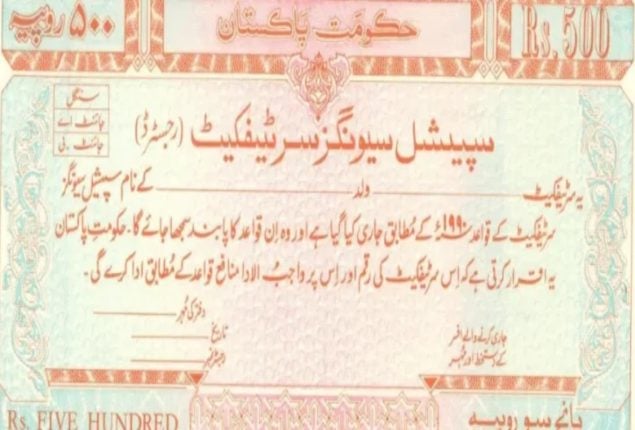 ۵۰۰ روپیہ
حکومت پاکستان
Rs. 500
سنگل
جائنٹ اے
جائنٹ بی
سپیشل سیونگز سرٹیفکیٹ (رجسٹرڈ)
یہ سرٹیفکیٹ ولد کے نام سپیشل سیونگز
سرٹیفکیٹ کے قواعد ۱۹۹۰ء کے مطابق جاری کیا گیا ہے اور وہ اِن قواعد کا پابند سمجھا جائے گا۔ حکومتِ پاکستان
یہ اقرار کرتی ہے کہ اِس سرٹیفکیٹ کی رقم اور اِس پر واجبُ الادا منافع قواعد کے مطابق ادا کرے گی۔
دفتر کی مُہر
جاری کرنے والے افسر
کے دستخط اور مُہر
تاریخ
رجسٹر نمبر
Rs. FIVE HUNDRED
پانچ سو روپیہ